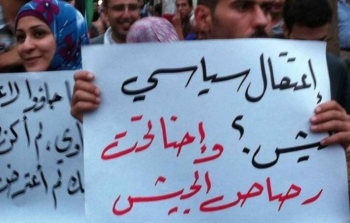 إعتقال سياسي
ليش؟ وإحنا تحت
رصاص الجيش
جاؤوا
لم أكن
لم أعترض